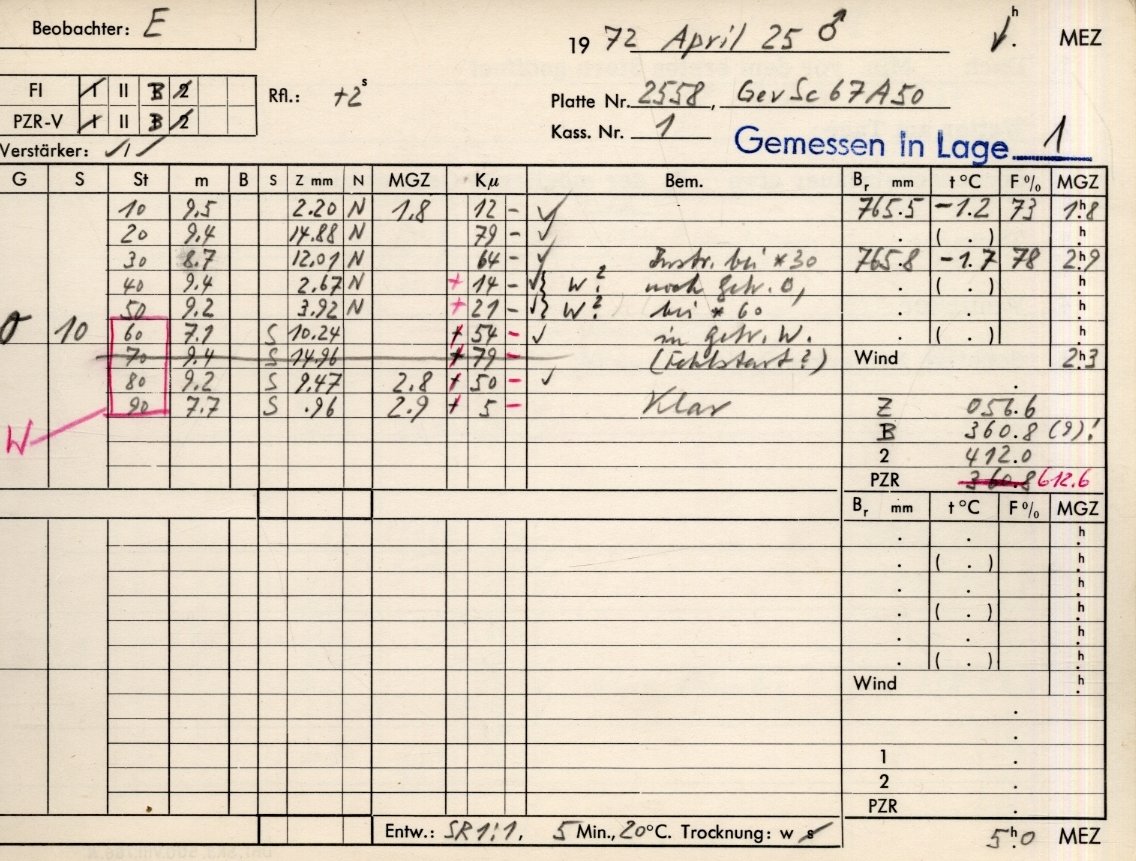 Beobachter: E
19 72 April 25 ♂ h MEZ
FI I II B 2
PZR-V I II B 2
Rfl.: +2s
Platte Nr. 2558, Gev Sc 67 A 50
Kass. Nr. 1
Verstärker: I
Gemessen in Lage 1
G S St m B S Z mm N MGZ Kμ Bem. Br mm t °C F % MGZ
10 9.5 2.20 N 1.8 12 – ✓ 765.5 –1.2 73 1h.8
20 9.4 14.88 N 79 – ✓ . ( . ) h.
30 8.7 12.01 N 64 – ✓ Instr. bei *30 765.8 –1.7 78 2h.9
40 9.4 2.67 N + 14 – ✓} W? noch Getr. O, . ( . ) h.
50 9.2 3.92 N + 21 – ✓} W? bis * 60 . . h.
σ 10 60 7.1 S 10.24 + 54 – ✓ in Getr. W. . ( . ) h.
70 9.4 S 14.96 + 79 – (Fehlstart?) Wind 2h.3
80 9.2 S 9.47 2.8 + 50 – ✓ .
90 7.7 S .96 2.9 + 5 – Klar Z 056.6
W
B 360.8 (9)!
2 412.0
PZR 360.8 612.6
Br mm t °C F % MGZ
. . h.
. ( . ) h.
. . h.
. ( . ) h.
. . h.
. ( . ) h.
Wind h.
.
.
1 .
2 .
PZR .
Entw.: SR 1:1, 5 Min., 20°C. Trocknung: w s
5h.0 MEZ